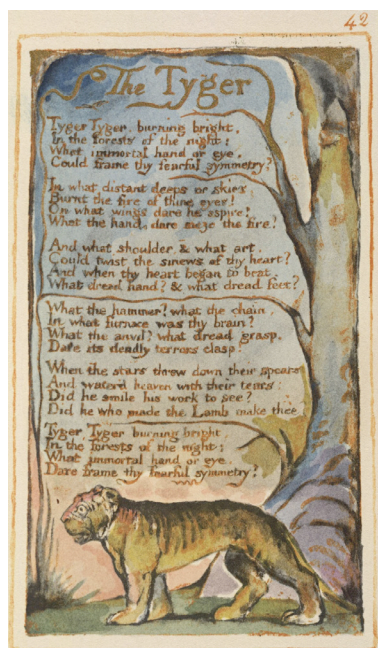 42
The Tyger
Tyger Tyger, burning bright,
In the forests of the night;
What immortal hand or eye,
Could frame thy fearful symmetry?
In what distant deeps or skies
Burnt the fire of thine eyes!
On what wings dare he aspire!
What the hand, dare sieze the fire!
And what shoulder, & what art,
Could twist the sinews of thy heart?
And when thy heart began to beat,
What dread hand? & what dread feet?
What the hammer? what the chain,
In what furnace was thy brain?
What the anvil? what dread grasp,
Dare its deadly terrors clasp!
When the stars threw down their spears
And water'd heaven with their tears:
Did he smile his work to see?
Did he who made the Lamb make thee
Tyger Tyger burning bright
In the forests of the night;
What immortal hand or eye,
Dare frame thy fearful symmetry?